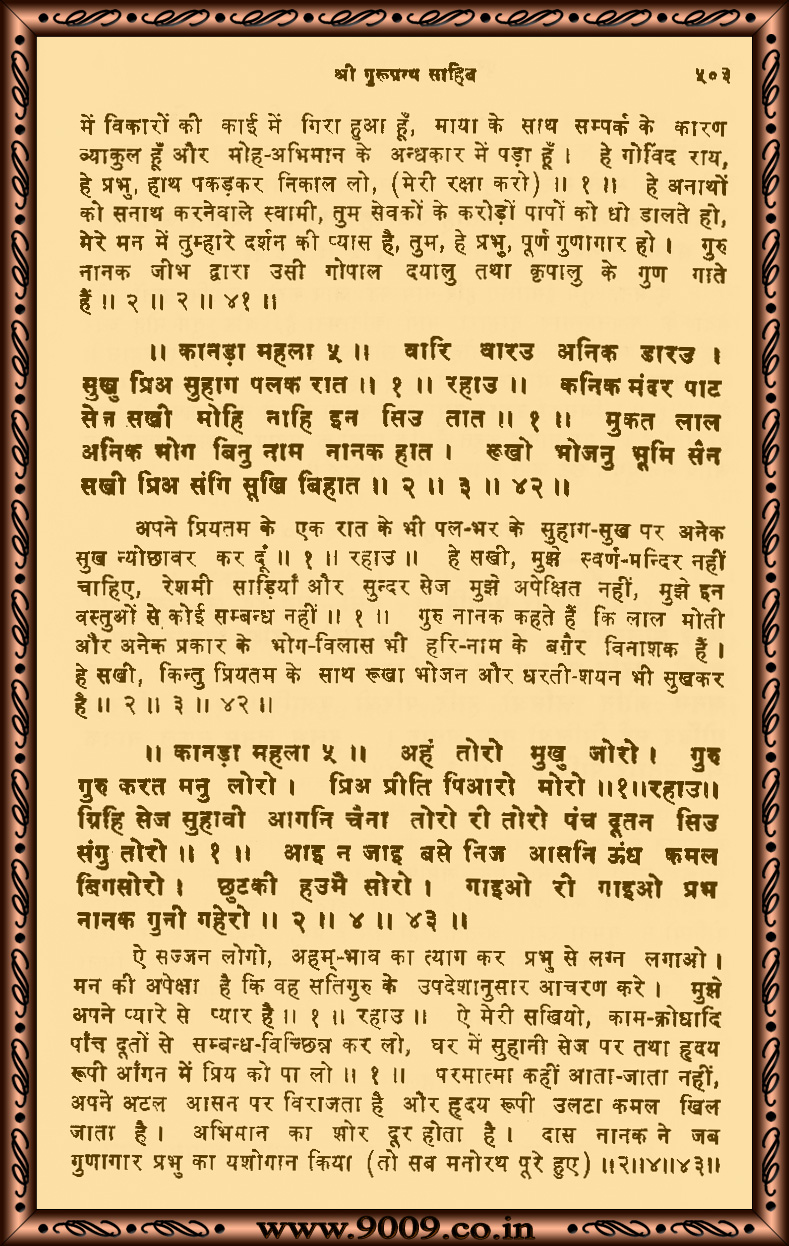 श्री गुरूग्रन्थ साहिब ५०३
में विकारों की काई में गिरा हुआ हूँ, माया के साथ सम्पर्क के कारण
व्याकुल हूँ और मोह-अभिमान के अन्धकार में पड़ा हूँ । हे गोविंद राय,
हे प्रभु, हाथ पकड़कर निकाल लो, (मेरी रक्षा करो) ॥ १ ॥ हे अनाथों
को सनाथ करनेवाले स्वामी, तुम सेवकों के करोड़ों पापों को धो डालते हो,
मेरे मन में तुम्हारे दर्शन की प्यास है, तुम, हे प्रभु, पूर्ण गुणागार हो । गुरु
नानक जीभ द्वारा उसी गोपाल दयालु तथा कृपालु के गुण गाते
हैं ॥ २ ॥ २ ॥ ४१ ॥
॥ कानड़ा महला ५ ॥ वारि वारउ अनिक डारउ ।
सुखु प्रिअ सुहाग पलक रात ॥ १ ॥ रहाउ ॥ कनिक मंदर पाट
सेज सखी मोहि नाहि इन सिउ तात ॥ १ ॥ मुकत लाल
अनिक भोग बिनु नाम नानक हात । रूखो भोजनु भूमि सैन
सखी प्रिअ संगि सूखि बिहात ॥ २ ॥ ३ ॥ ४२ ॥
अपने प्रियतम के एक रात के भी पल-भर के सुहाग-सुख पर अनेक
सुख न्योछावर कर दूँ ॥ १ ॥ रहाउ ॥ हे सखी, मुझे स्वर्ण-मन्दिर नहीं
चाहिए, रेशमी साड़ियाँ और सुन्दर सेज मुझे अपेक्षित नहीं, मुझे इन
वस्तुओं से कोई सम्बन्ध नहीं ॥ १ ॥ गुरु नानक कहते हैं कि लाल मोती
और अनेक प्रकार के भोग-विलास भी हरि-नाम के बग़ैर विनाशक हैं ।
हे सखी, किन्तु प्रियतम के साथ रूखा भोजन और धरती-शयन भी सुखकर
है ॥ २ ॥ ३ ॥ ४२ ॥
॥ कानड़ा महला ५ ॥ अहं तोरो मुखु जोरो । गुरु
गुरु करत मनु लोरो । प्रिअ प्रीति पिआरो मोरो ॥१॥रहाउ॥
ग्रिहि सेज सुहावी आगनि चैना तोरो री तोरो पंच दूतन सिउ
संगु तोरो ॥ १ ॥ आइ न जाइ बसे निज आसनि ऊंध कमल
बिगसोरो । छुटकी हउमै सोरो । गाइओ री गाइओ प्रभ
नानक गुनी गहेरो ॥ २ ॥ ४ ॥ ४३ ॥
ऐ सज्जन लोगो, अहम्-भाव का त्याग कर प्रभु से लग्न लगाओ ।
मन की अपेक्षा है कि वह सतिगुरु के उपदेशानुसार आचरण करे । मुझे
अपने प्यारे से प्यार है ॥ १ ॥ रहाउ ॥ ऐ मेरी सखियो, काम-क्रोधादि
पाँच दूतों से सम्बन्ध-विच्छिन्न कर लो, घर में सुहानी सेज पर तथा हृदय
रूपी आँगन में प्रिय को पा लो ॥ १ ॥ परमात्मा कहीं आता-जाता नहीं,
अपने अटल आसन पर विराजता है और हृदय रूपी उलटा कमल खिल
जाता है । अभिमान का शोर दूर होता है । दास नानक ने जब
गुणागार प्रभु का यशोगान किया (तो सब मनोरथ पूरे हुए) ॥२॥४॥४३॥
www.9009.co.in